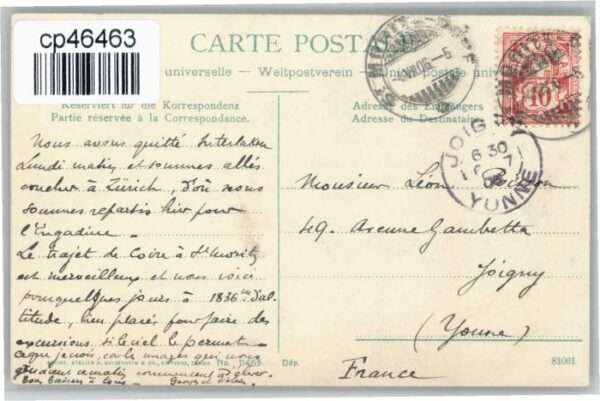 cp46463
CARTE POSTALE
universelle — Weltpostverein — Union postale
Reserviert für die Korrespondenz
Partie réservée à la Correspondance.
Adresse des Empfängers
Adresse du Destinataire
10
JOIGNY
6 30
YONNE
Nous avons quitté Interlaken
Lundi matin et sommes allés
coucher à Zürich, d'où nous
sommes repartis hier pour
l'Engadine.
Le trajet de Coire à St Moritz
est merveilleux et nous voici
pour quelques jours à 1836 m d'al-
titude, bien placés pour faire des
excursions si le ciel le permet
car les nuages qui nous
ce matin commencent à
Bons baisers à tous. Georges et
Monsieur Léon
49. Avenue Gambetta
Joigny
(Yonne)
France
Dép.
81001